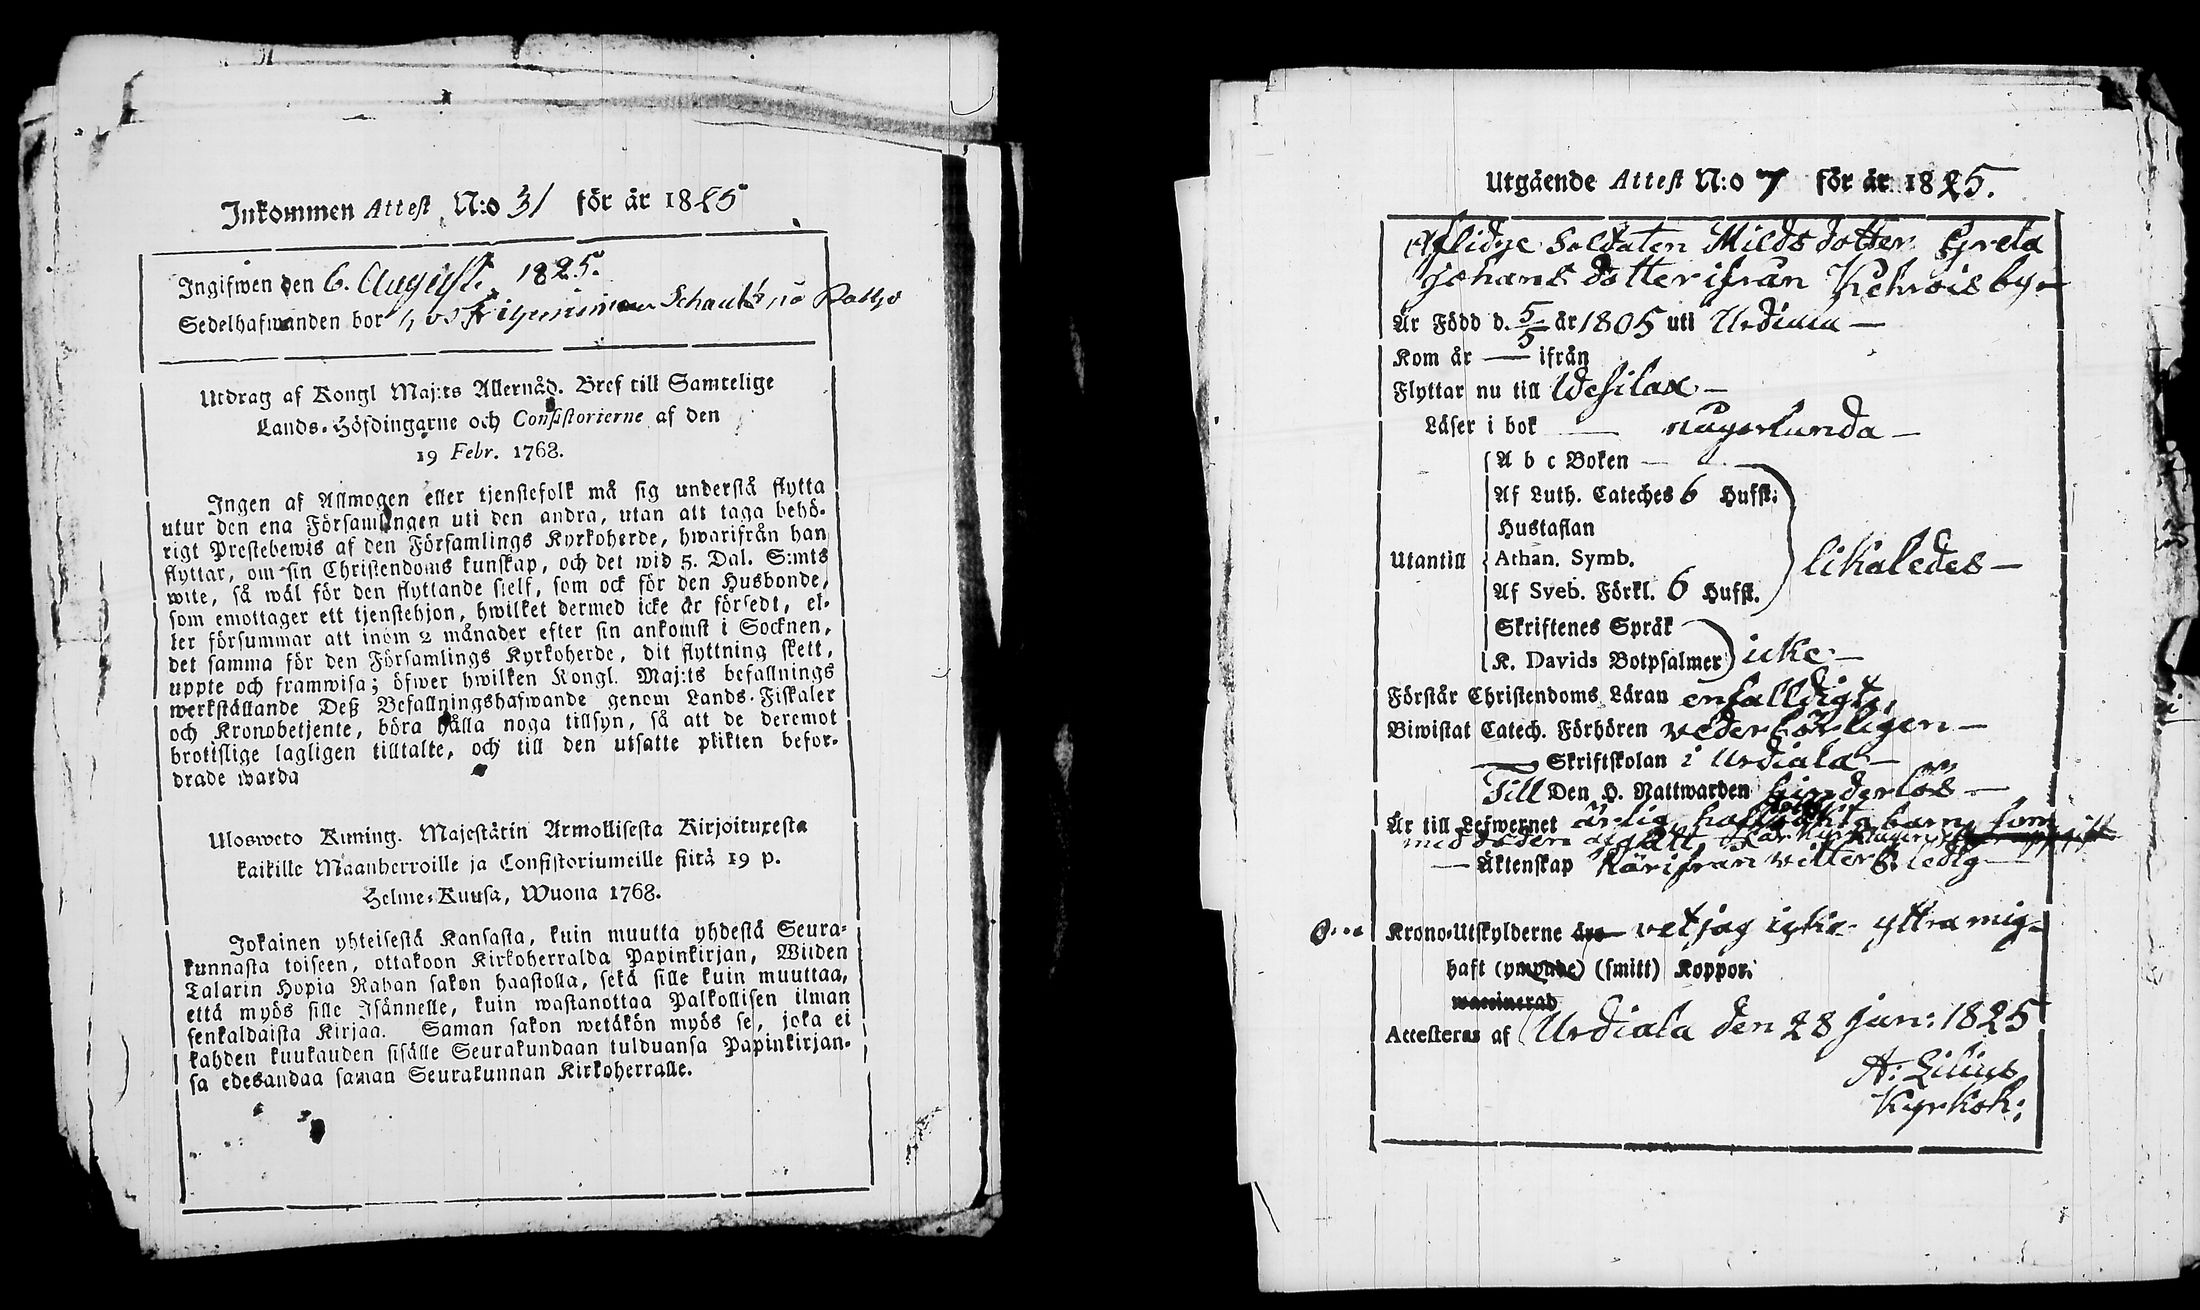 Inkommen Attest N:o 31 för år 1825
Ingifwen den 6. August. 1825.
Sedelhafwanden bor hos
Utdrag af Kongl Maj:ts Allernåd. Bref till Samtelige
Lands-Höfdingarne och Consistorierne af den
19 Febr. 1768.
Ingen af Allmogen eller tjenstefolk må sig understå flytta
utur den ena Församlingen uti den andra, utan att taga behö-
rigt Prestebewis af den Församlings Kyrkoherde, hwarifrån han
flyttar, om sin Christendoms kunskap, och det wid 5. Dal. S:mts
wite, så wäl för den flyttande sielf, som ock för den Husbonde,
som emottager ett tjenstehjon, hwilket dermed icke är försedt, el-
ler försummar att inom 2 månader efter sin ankomst i Socknen,
det samma för den Församlings Kyrkoherde, dit flyttning skett,
uppte och framwisa; öfwer hwilken Kongl. Maj:ts befallnings
werkställande Deß Befallningshafwande genom Lands-Fiskaler
och Kronobetjente, böra hålla noga tillsyn, så att de deremot
brotislige lagligen tilltalte, och till den utsatte plikten befor-
drade warda
Ulosweto Kuning. Majestätin Armollisesta Kirjoituxesta
kaikille Maanherroille ja Consistoriumeille siitä 19 p.
Helme-Kuusa, Wuona 1768.
Jokainen yhteisestä Kansasta, kuin muutta yhdestä Seura-
kunnasta toiseen, ottakoon Kirkoherralda Papinkirjan, Wiiden
Talarin Hopia Rahan sakon haastolla, sekä sille kuin muuttaa,
että myös sille Isännelle, kuin wastanottaa Palkollisen ilman
senkaldaista Kirjaa. Saman sakon wetäkön myös se, joka ei
kahden kuukauden sisälle Seurakundaan tulduansa Papinkirjan-
sa edesandaa saman Seurakunnan Kirkoherralle.
Utgående Attest N:o 7 för år 1825.
Aflidne Soldaten Milds dotter Greta
Johans dotter ifrån Kehrois by
Är Född d. 5/5 år 1805 uti Urdiala
Kom år — ifrån
Flyttar nu till Wesilax
Läser i bok — någorlunda
A b c Boken
Af Luth. Cateches 6 Hufst.
Hustaflan
Utantill Athan. Symb. likaledes
Af Sveb. Förkl. 6 Hufst.
Skriftenes Språk
K. Davids Botpsalmer icke
Förstår Christendoms Läran enfalldigt,
Biwistat Catech. Förhören vederbörligen
Skriftskolan i Urdiala
Till Den H. Nattwarden hinderlös
Är till Lefwernet ärlig, barn, som
med döden
Äktenskap härifrån vitterl. ledig
Krono-Utskylderne äro vet jag icke yttra mig
haft (ympade) (smitt) Koppor.
waccinerad
Attesteras af Urdiala den 28 Jan: 1825
A: Lilius
Kyrkoh: